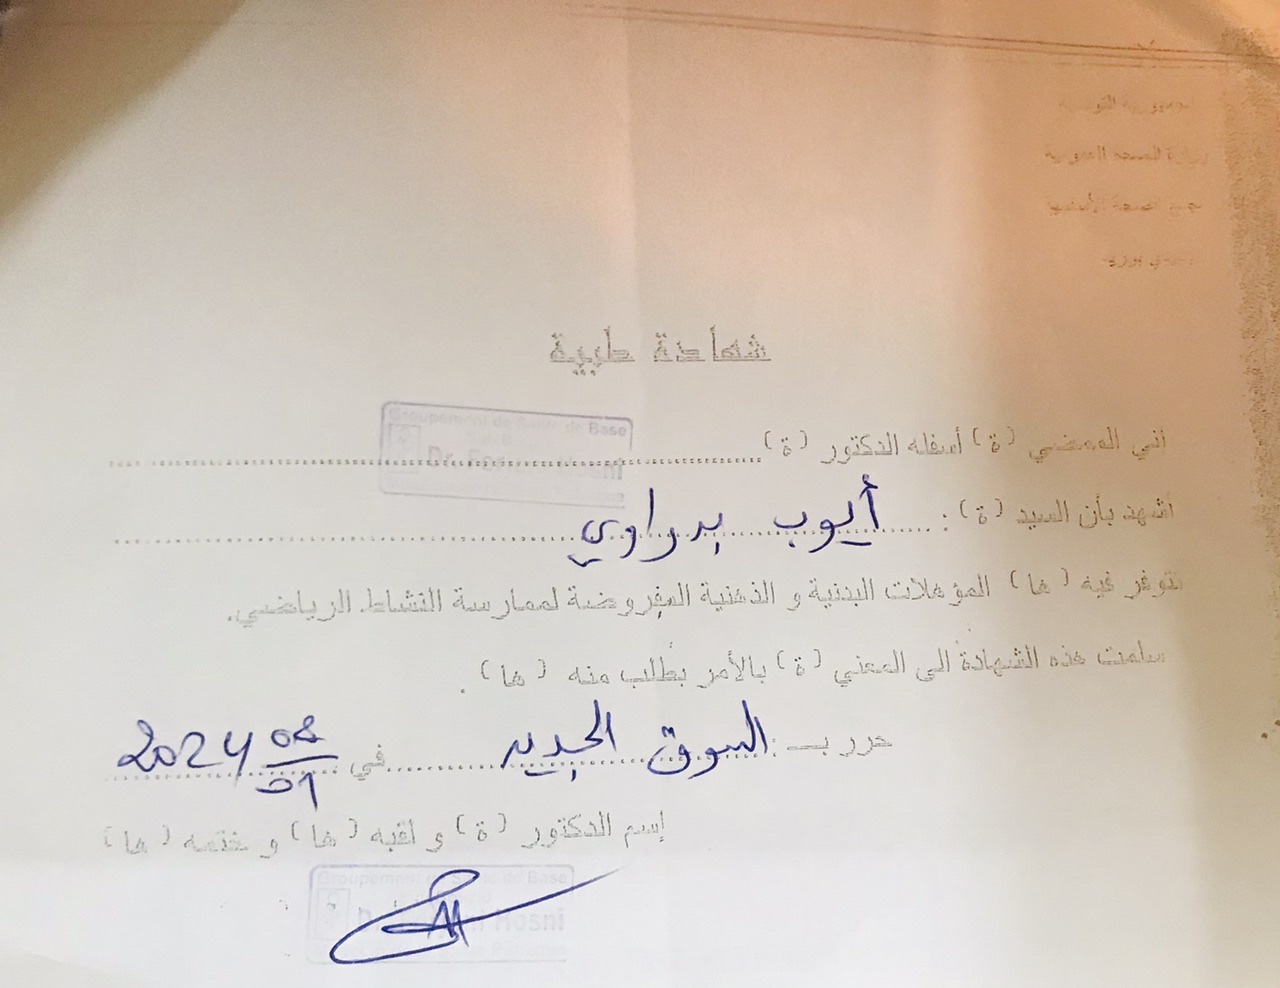 الجمهورية التونسية
وزارة الصحة العمومية
شهادة طبية
Groupement de Santé de Base
Dr.
إني الممضي (ة) أسفله الدكتور (ة)
أشهد بأن السيد (ة) : أيوب بدراوي
تتوفر فيه (ها) المؤهلات البدنية و الذهنية المفروضة لممارسة النشاط الرياضي.
سلمت هذه الشهادة الى المعني (ة) بالأمر بطلب منه (ها) .
حرر بـ : السوق الجديد في 08 2024
01
إسم الدكتور (ة) و لقبه (ها) و ختمه (ها)
Groupement de Santé de Base
Dr. Hosni